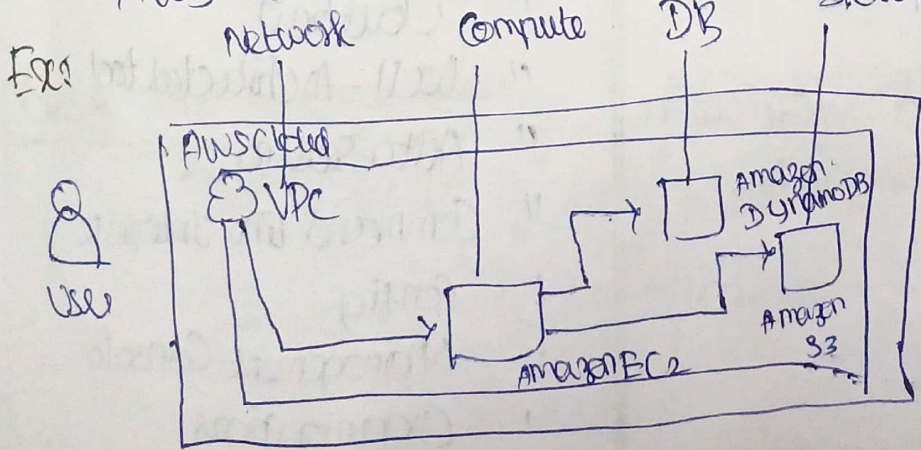 Network Compute DB
Ex:
AWS Cloud
VPC
Amazon
DynamoDB
User
Amazon
S3
Amazon EC2